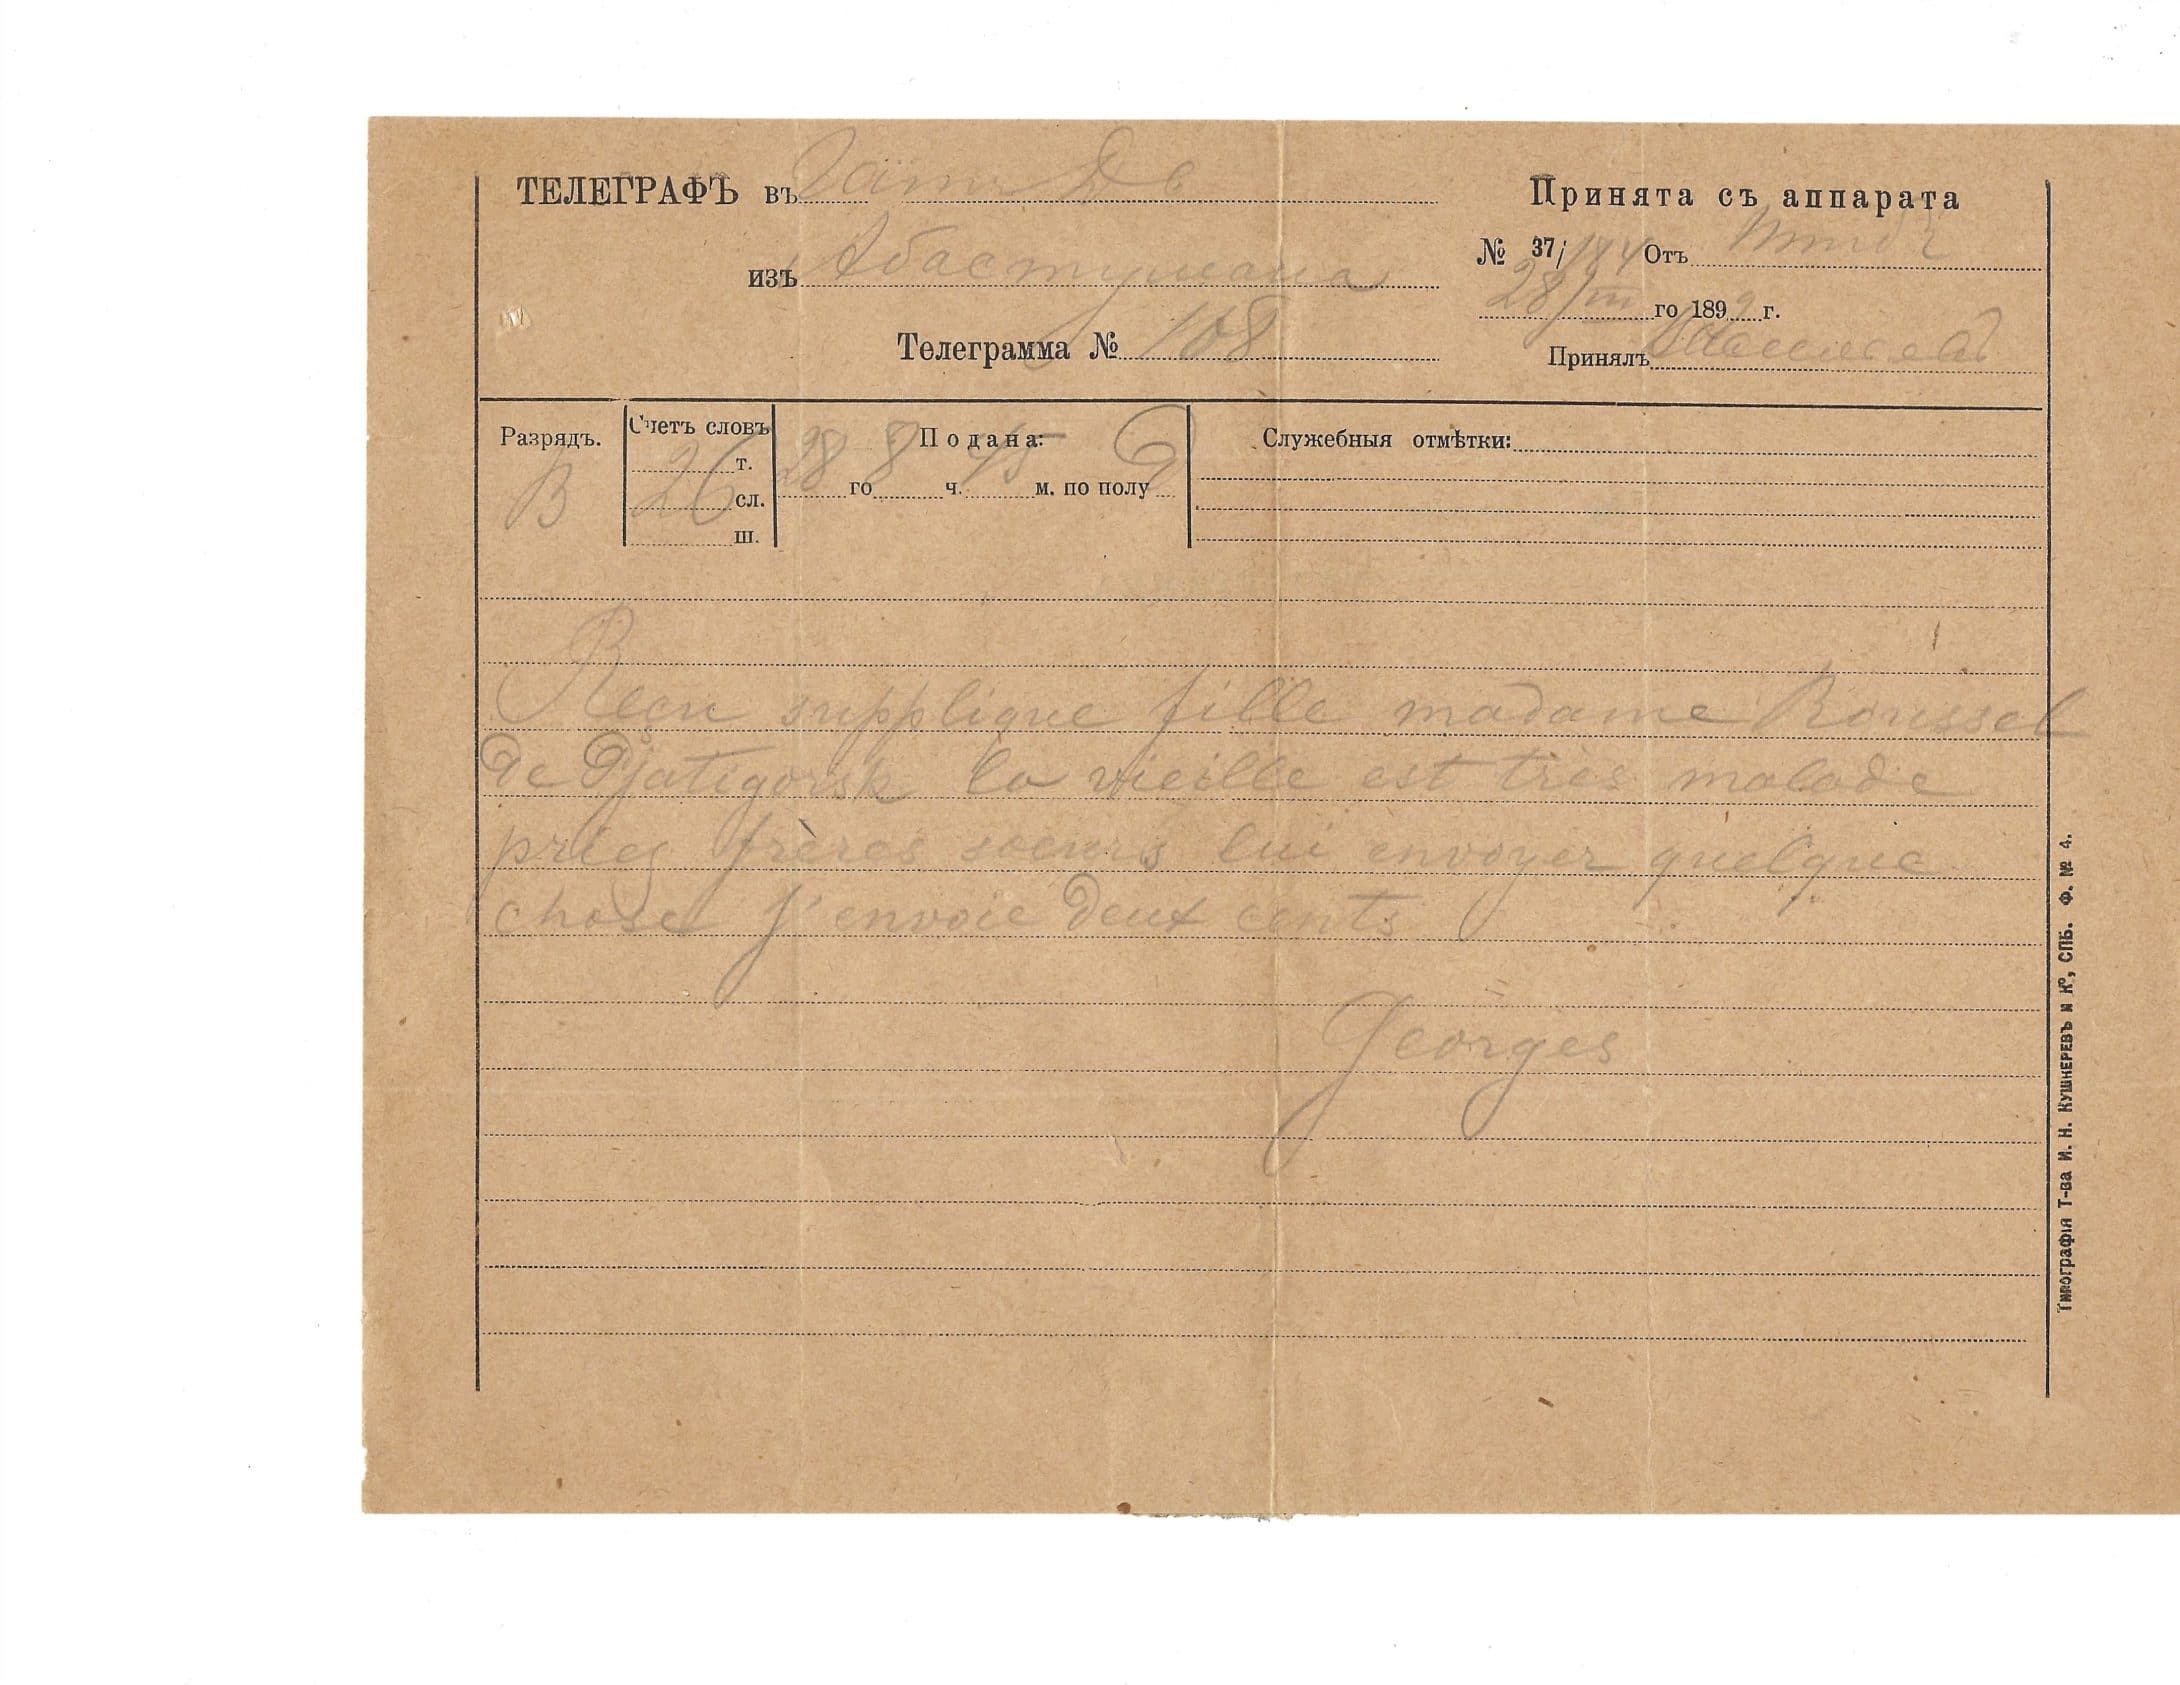 ТЕЛЕГРАФЪ въ Гатч Дв
Принята съ аппарата
изъ Абастумана
№ 37/ 184 Отъ
28/III го 1899 г.
Телеграмма № 108
Принялъ
Разрядъ.
Счетъ словъ
Подана:
Служебныя отмѣтки:
В
26
т.
сл.
ш.
28 го 8 ч. 45 м. по полу
Reçu supplique fille madame Roussel
de Pjatigorsk la vieille est très malade
priez frères soeurs lui envoyer quelque
chose j'envoie deux cents
Georges
Типографія Т-ва И. Н. КУШНЕРЕВЪ и К°, СПБ. Ф. № 4.